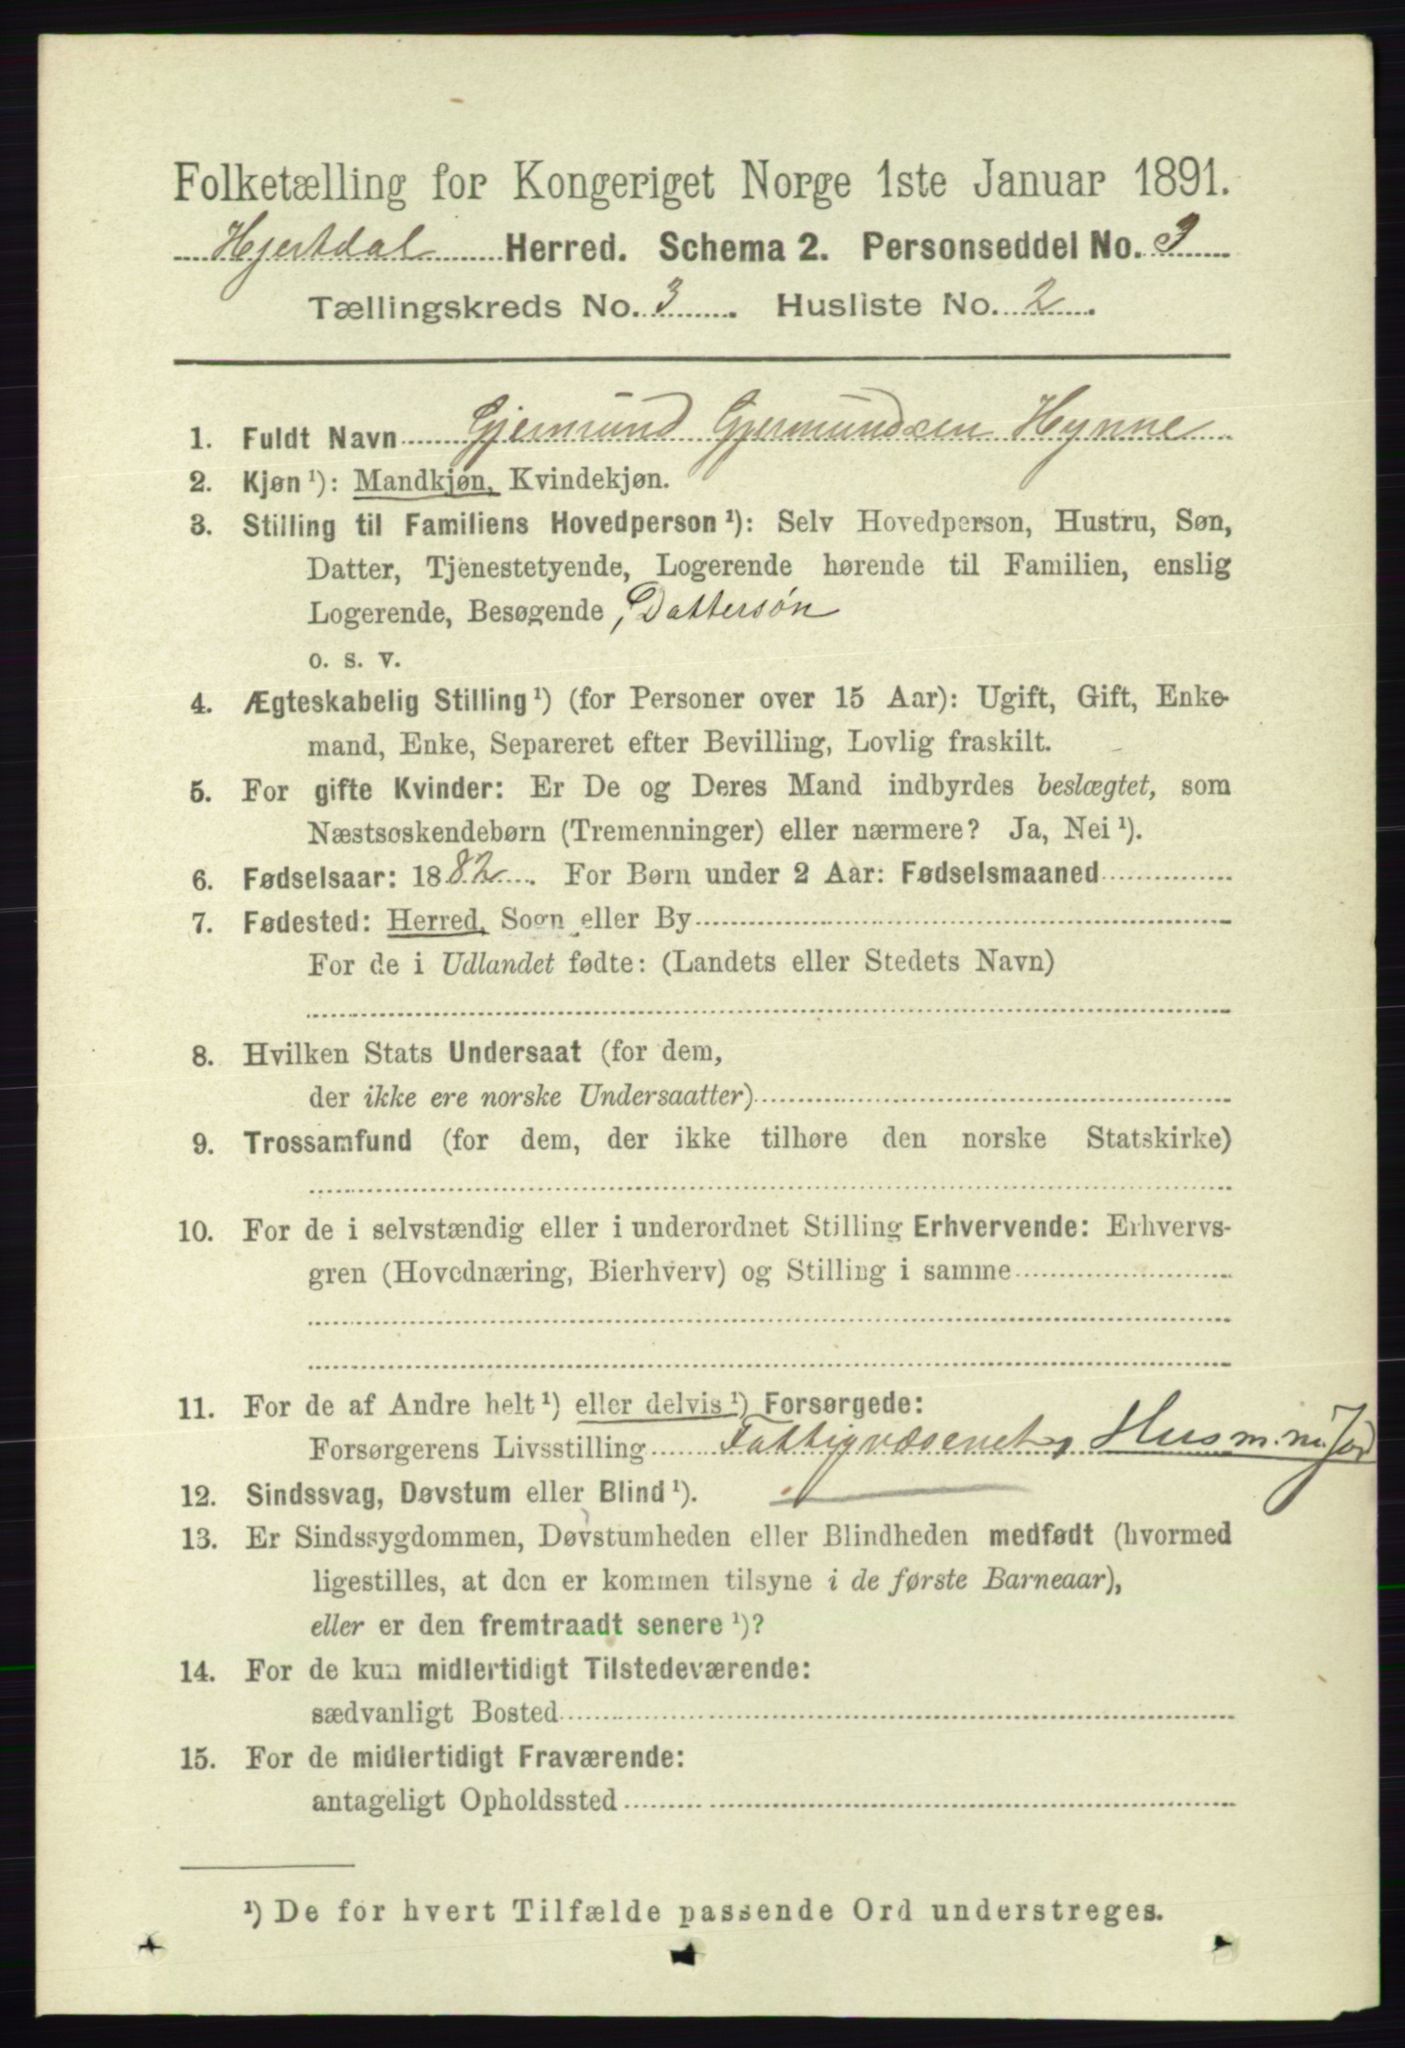 Folketælling for Kongeriget Norge 1ste Januar 1891.
Hjertdal Herred. Schema 2. Personseddel No. 3
Tællingskreds No. 3. Husliste No. 2.
1. Fuldt Navn Gjermund Gjermundsen Hynne
2. Kjøn¹): Mandkjøn, Kvindekjøn.
3. Stilling til Familiens Hovedperson¹): Selv Hovedperson, Hustru, Søn,
Datter, Tjenestetyende, Logerende hørende til Familien, enslig
Logerende, Besøgende, Dattersøn
o. s. v.
4. Ægteskabelig Stilling¹) (for Personer over 15 Aar): Ugift, Gift, Enke-
mand, Enke, Separeret efter Bevilling, Lovlig fraskilt.
5. For gifte Kvinder: Er De og Deres Mand indbyrdes beslægtet, som
Næstsøskendebørn (Tremenninger) eller nærmere? Ja, Nei¹).
6. Fødselsaar: 1882. For Børn under 2 Aar: Fødselsmaaned
7. Fødested: Herred, Sogn eller By
For de i Udlandet fødte: (Landets eller Stedets Navn)
8. Hvilken Stats Undersaat (for dem,
der ikke ere norske Undersaatter)
9. Trossamfund (for dem, der ikke tilhøre den norske Statskirke)
10. For de i selvstændig eller i underordnet Stilling Erhvervende: Erhvervs-
gren (Hovednæring, Bierhverv) og Stilling i samme
11. For de af Andre helt¹) eller delvis¹) Forsørgede:
Forsørgerens Livsstilling Fattigvæsenet, Husm. m. Jord
12. Sindssvag, Døvstum eller Blind¹).
13. Er Sindssygdommen, Døvstumheden eller Blindheden medfødt (hvormed
ligestilles, at den er kommen tilsyne i de første Barneaar),
eller er den fremtraadt senere¹)?
14. For de kun midlertidigt Tilstedeværende:
sædvanligt Bosted
15. For de midlertidigt Fraværende:
antageligt Opholdssted
¹) De for hvert Tilfælde passende Ord understreges.